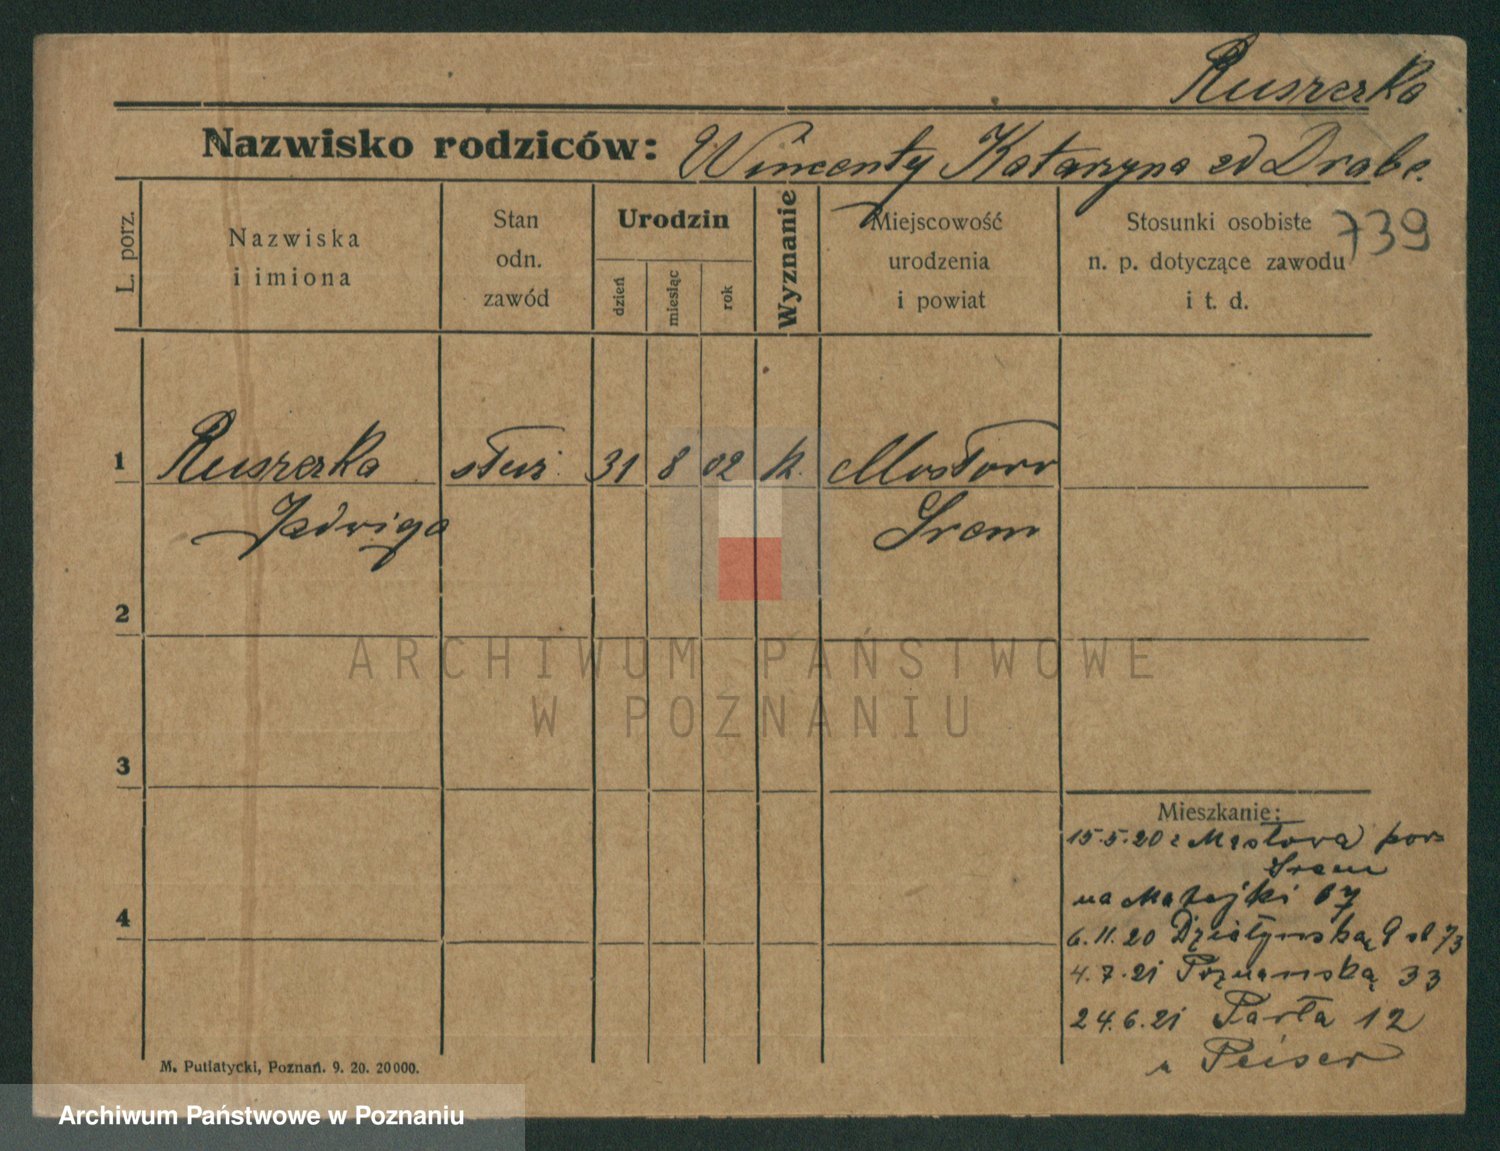 Ruszczka
Nazwisko rodziców: Wincenty Katarzyna zd Drabe.
739
L. porz.
Nazwiska
i imiona
Stan
odn.
zawód
Urodzin
dzień
miesiąc
rok
Wyznanie
Miejscowość
urodzenia
i powiat
Stosunki osobiste
n. p. dotyczące zawodu
i t. d.
1 Ruszczka służ. 31 8 02 k.
Jadwiga Srem
2
3
4
Mieszkanie:
15.5.20 z pow
Srem
na Matejki 67
6.11.20 Działyńska 9
4.7.21 Poznańska 33
24.6.21 12
u Peiser
M. Putiatycki, Poznań. 9. 20. 20000.
ARCHIWUM PAŃSTWOWE
W POZNANIU
Archiwum Państwowe w Poznaniu